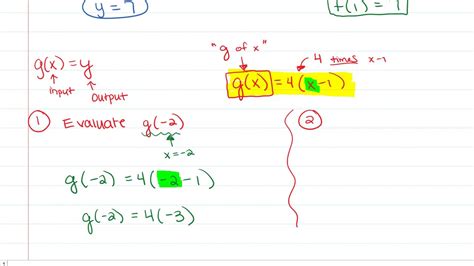 y = 7
f(1) = 7
"g of x"
4 times x-1
g(x) = y
input
output
g(x) = 4(x-1)
1 Evaluate g(-2)
x=-2
g(-2) = 4(-2-1)
g(-2) = 4(-3)
2